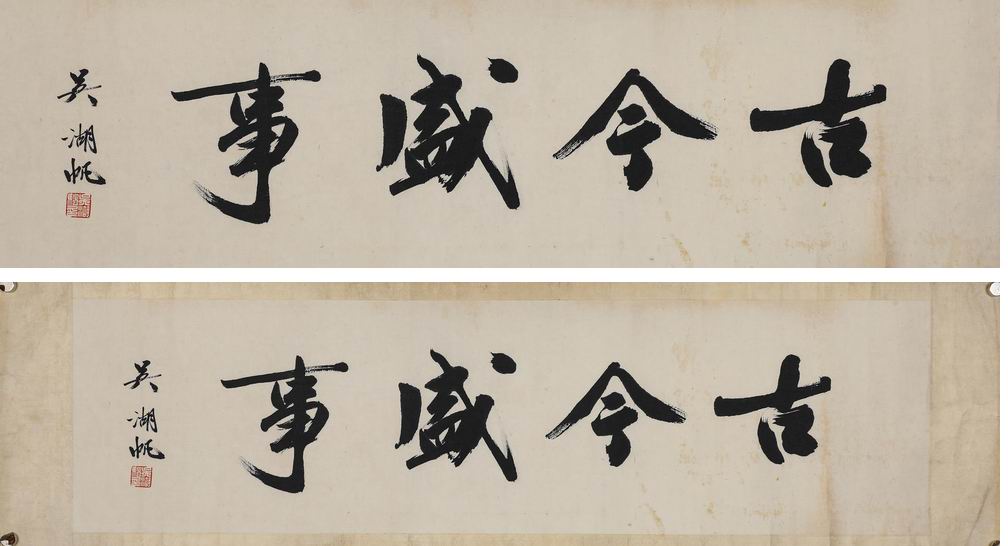 古今盛事
吴湖帆
古今盛事
吴湖帆